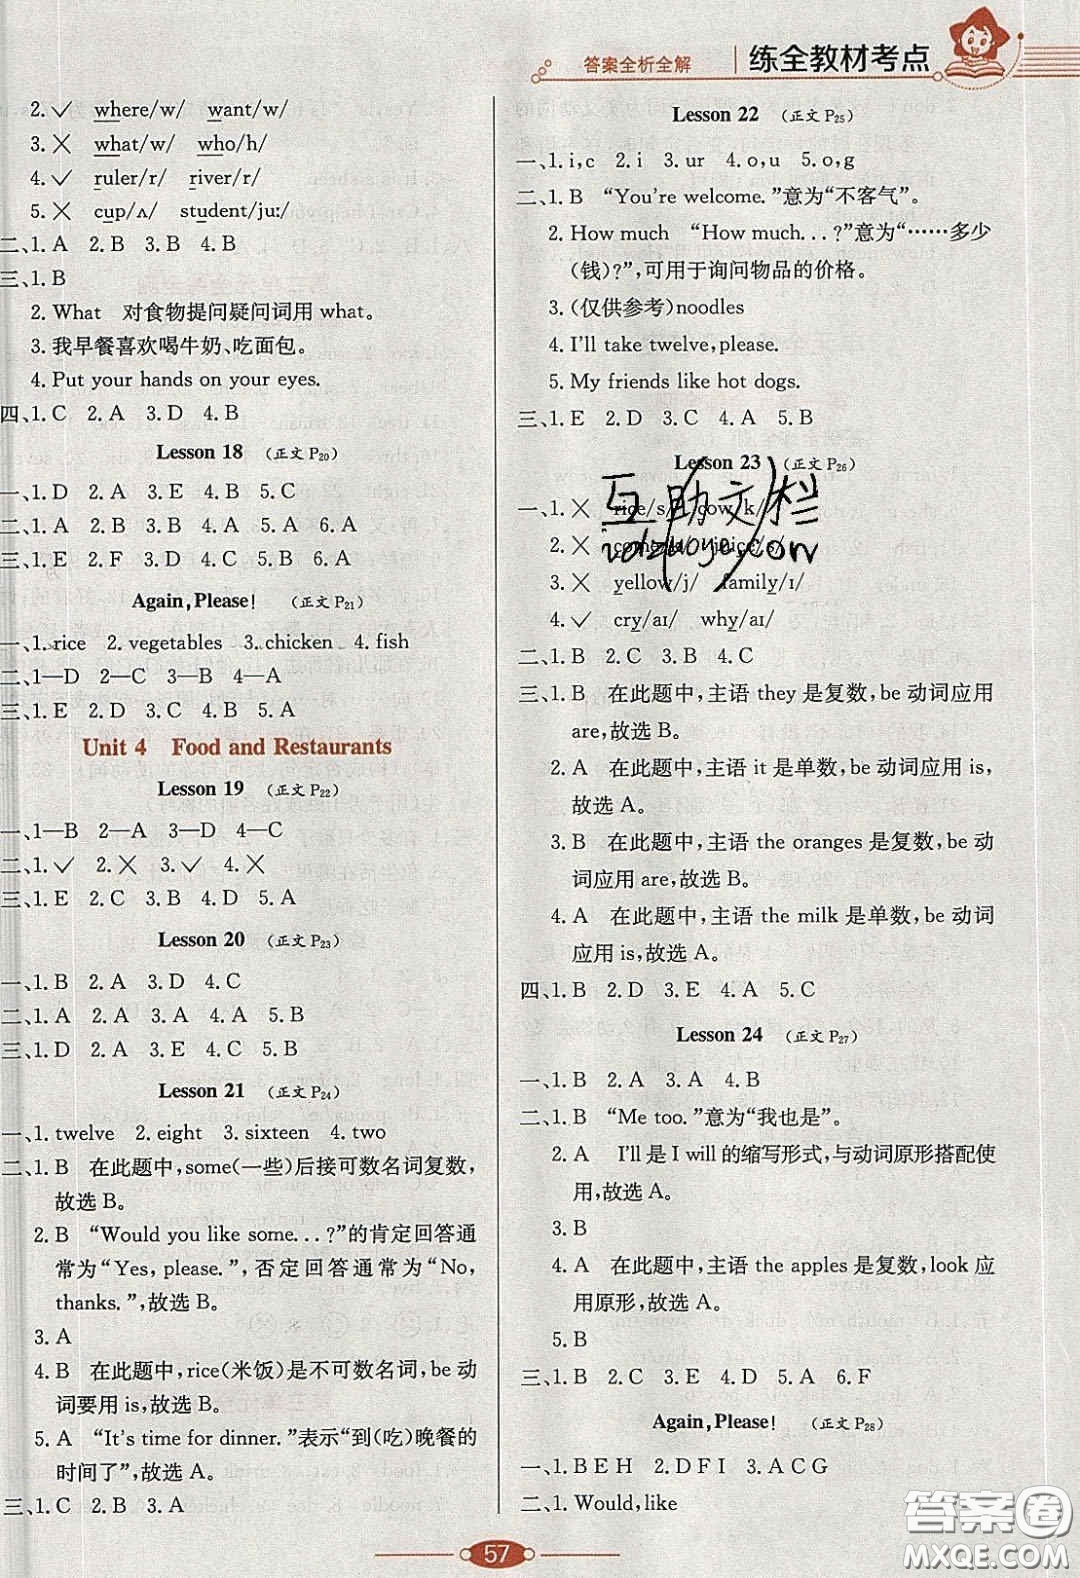 答案全析全解 练全教材考点
2. ✓ where/w/ want/w/
3. ✕ what/w/ who/h/
4. ✓ ruler/r/ river/r/
5. ✕ cup/ʌ/ student/juː/
二、1. A 2. B 3. B 4. B
三、1. B
2. What 对食物提问疑问词用 what。
3. 我早餐喜欢喝牛奶、吃面包。
4. Put your hands on your eyes.
四、1. C 2. A 3. D 4. B
Lesson 18 (正文 P20)
一、1. D 2. A 3. E 4. B 5. C
二、1. A 2. B 3. B 4. A 5. A 6. A
三、1. E 2. F 3. C 4. D 5. B 6. A
Again, Please! (正文 P21)
一、1. rice 2. vegetables 3. chicken 4. fish
二、1—D 2—C 3—B 4—A
三、1. E 2. D 3. C 4. B 5. A
Unit 4 Food and Restaurants
Lesson 19 (正文 P22)
一、1—B 2—A 3—D 4—C
二、1. ✓ 2. ✕ 3. ✓ 4. ✕
三、1. E 2. C 3. B 4. D 5. A
Lesson 20 (正文 P23)
一、1. B 2. A 3. D 4. C
二、1. A 2. A 3. A 4. A 5. B
三、1. D 2. A 3. E 4. C 5. B
Lesson 21 (正文 P24)
一、1. twelve 2. eight 3. sixteen 4. two
二、1. B 在此题中，some(一些)后接可数名词复数，
故选 B。
2. B “Would you like some...?”的肯定回答通
常为“Yes, please.”，否定回答通常为“No,
thanks.”，故选 B。
3. A
4. B 在此题中，rice(米饭)是不可数名词，be 动
词要用 is，故选 B。
5. A “It's time for dinner.”表示“到(吃)晚餐的
时间了”，故选 A。
三、1. C 2. B 3. A
Lesson 22 (正文 P25)
一、1. i, c 2. i 3. ur 4. o, u 5. o, g
二、1. B “You're welcome.”意为“不客气”。
2. How much “How much...?”意为“……多少
(钱)?”，可用于询问物品的价格。
3. (仅供参考)noodles
4. I'll take twelve, please.
5. My friends like hot dogs.
三、1. E 2. D 3. C 4. A 5. B
Lesson 23 (正文 P26)
一、1. ✕ rice/s/ cow/k/
2. ✕ juice/s/
3. ✕ yellow/j/ family/ɪ/
4. ✓ cry/aɪ/ why/aɪ/
二、1. B 2. C 3. B 4. C
三、1. B 在此题中，主语 they 是复数，be 动词应用
are，故选 B。
2. A 在此题中，主语 it 是单数，be 动词应用 is，
故选 A。
3. B 在此题中，主语 the oranges 是复数，be 动
词应用 are，故选 B。
4. A 在此题中，主语 the milk 是单数，be 动词
应用 is，故选 A。
四、1. B 2. D 3. E 4. A 5. C
Lesson 24 (正文 P27)
一、1. B 2. A 3. A 4. B
二、1. B “Me too.”意为“我也是”。
2. A I'll 是 I will 的缩写形式，与动词原形搭配使
用，故选 A。
3. B
4. A 在此题中，主语 the apples 是复数，look 应
用原形，故选 A。
5. B
三、1. B 2. C 3. E 4. D 5. A 6. F
Again, Please! (正文 P28)
一、1. B E H 2. D F I 3. A C G
二、1. Would, like
57
互助文栏
答案圈
MXQE.COM